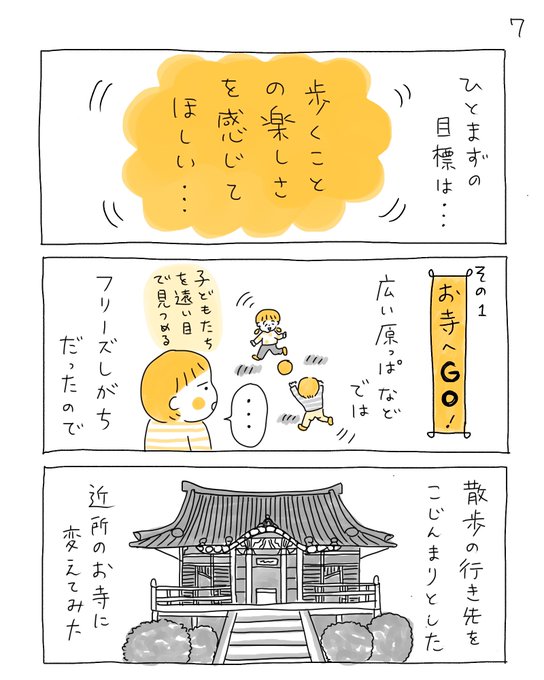 7
ひとまずの
目標は・・・
歩くこと
の楽しさ
を感じて
ほしい・・・
その1
お寺へGO!
広い原っぱなど
では
子どもたち
を遠い目
で見つめる
・・・
フリーズしがち
だったので
散歩の行き先を
こじんまりとした
近所のお寺に
変えてみた